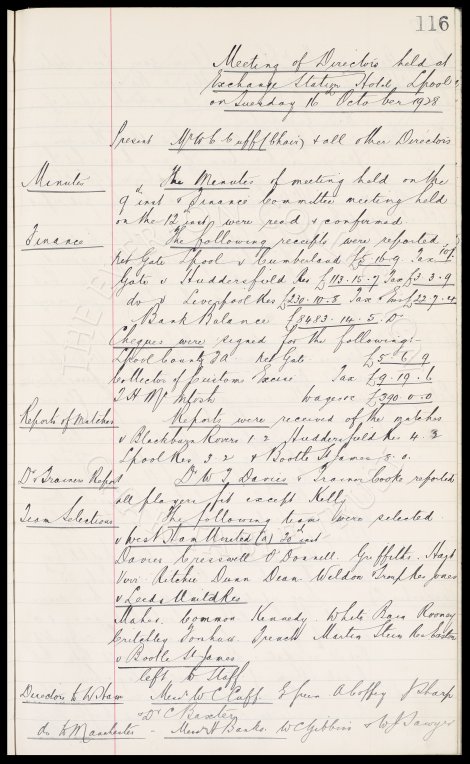 116
Meeting of Directors held at
Exchange Station Hotel, Lpool
on Tuesday 16 October 1928
Present Mr W C Cuff (Chair) & all other Directors
Minutes The Minutes of meeting held on the
9th inst & Finance Committee meeting held
on the 12th inst were read & confirmed.
Finance The following receipts were reported
Net Gate Lpool v Cumberland £5.16.9. Tax
Gate v Huddersfield Res £113.15.7 Tax £3.3.9
do v Liverpool Res £230.10.8 Tax £22.7.4
Bank Balance £8483.14.5
Cheques were signed for the following:-
Lpool County FA Net Gate £5/6/9
Collector of Customs Excise Tax £9.19.6
T H McIntosh Wages £390.0.0
Reports of Matches Reports were received of the matches
v Blackburn Rovers 1.2 Huddersfield Res 4.3
Lpool Res 3.2 & Bootle St James 8.0.
Dr & Trainers Report Dr W J Davies & Trainer Cooke reported
all players fit except Kelly
Team Selections The following teams were selected
v West Ham United (a) 20th inst
Davies Cresswell O'Donnell. Griffiths. Hart
Virr. Ritchie Dunn Dean. Weldon Troup Res Jones
v Leeds United Res
Maher. Common Kennedy. White Bain Rooney
Critchley Forshaw French Martin Stein Res Easton
v Bootle St James
left to Staff
Directors to W Ham Messrs W C Cuff. E Green A Coffey J Sharp
& Dr C Baxter
do to Manchester - Messrs A Banks. W C Gibbins & W J Sawyer